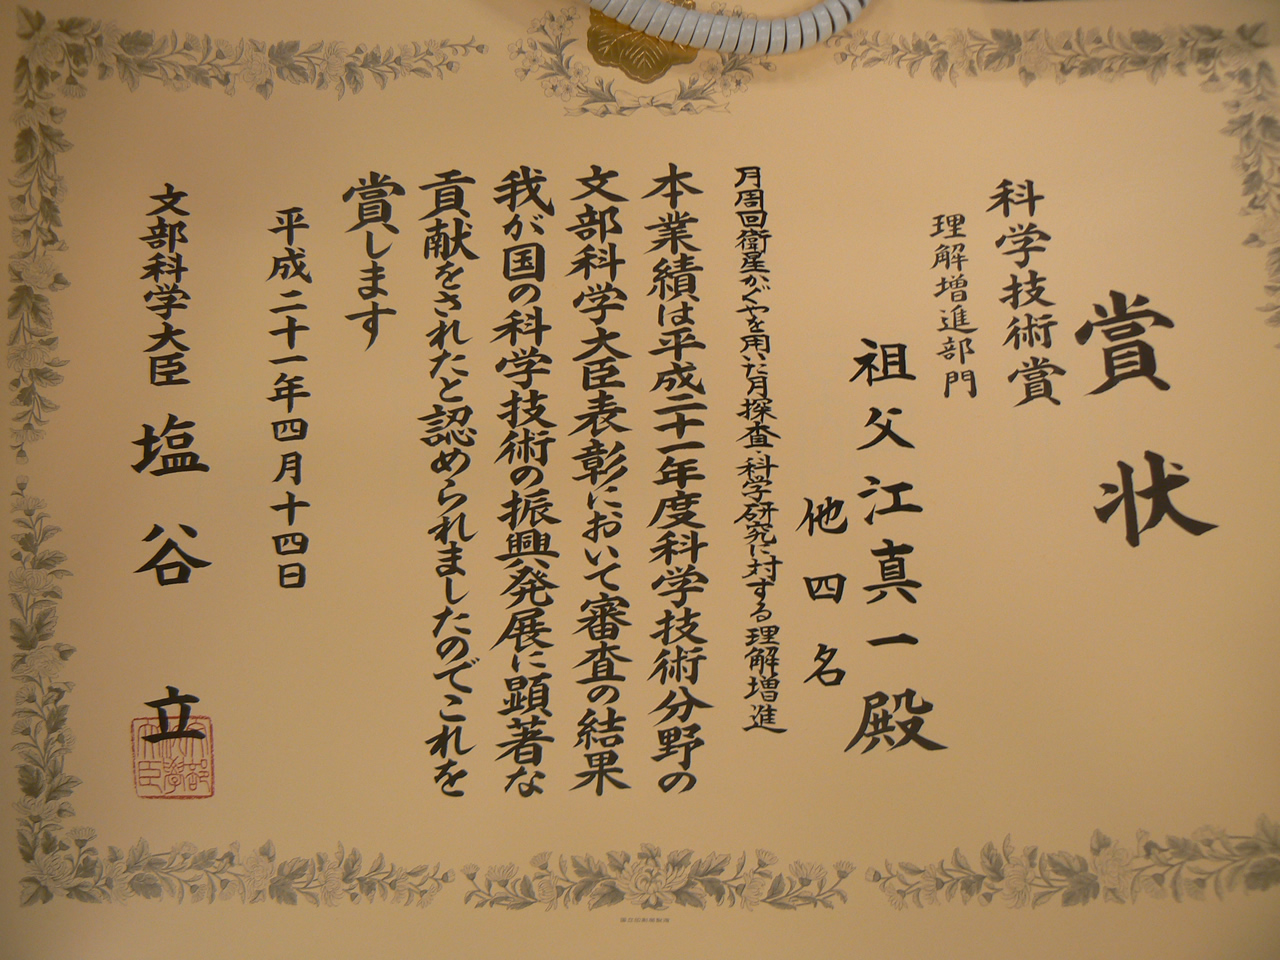 賞状
科学技術賞
理解増進部門
祖父江真一殿
他四名
月周回衛星かぐやを用いた月探査・科学研究に対する理解増進
本業績は平成二十一年度科学技術分野の
文部科学大臣表彰において審査の結果
我が国の科学技術の振興発展に顕著な
貢献をされたと認められましたのでこれを
賞します
平成二十一年四月十四日
文部科学大臣 塩谷立